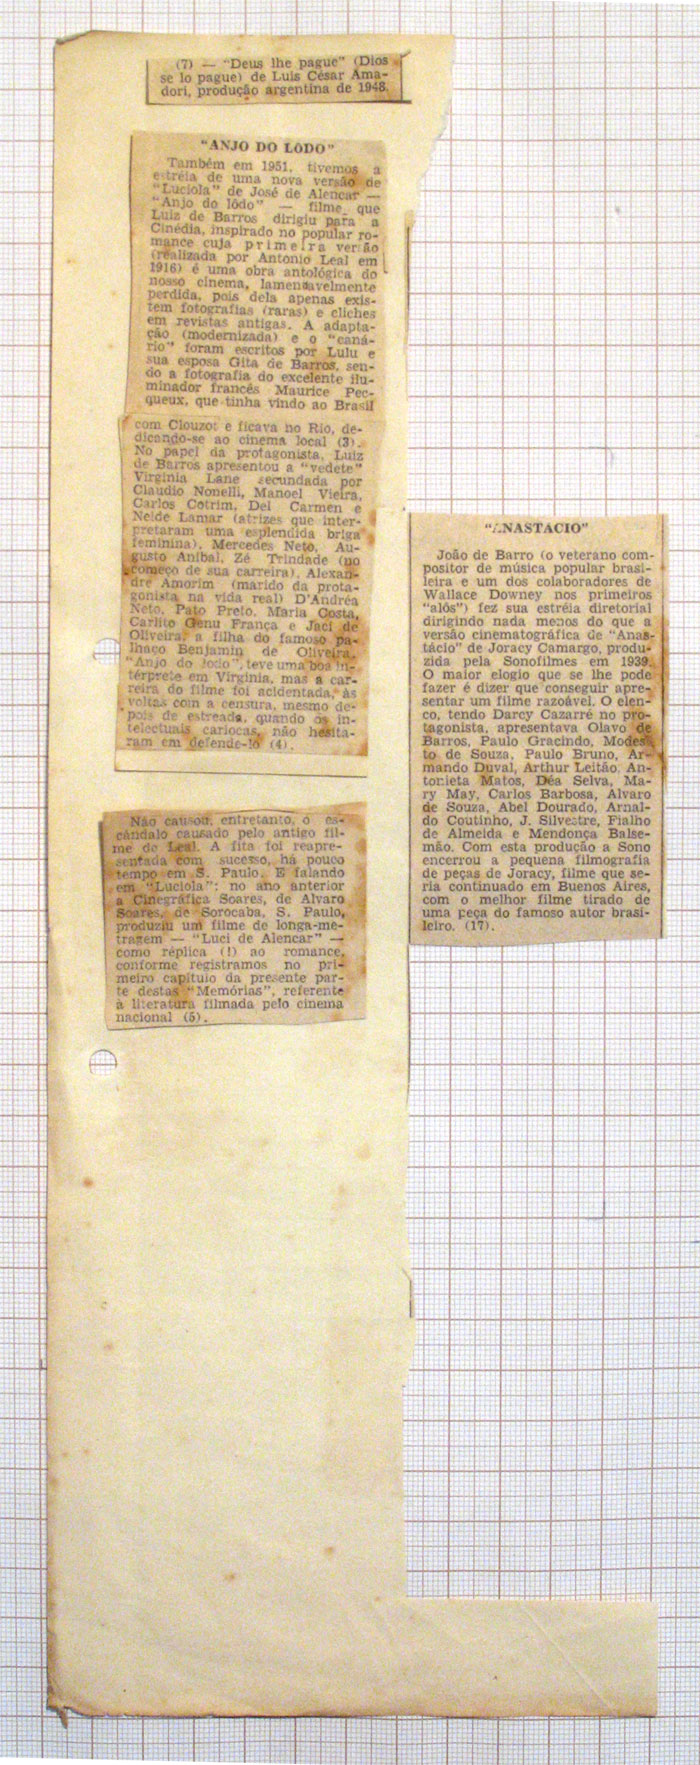 (7) — "Deus lhe pague" (Dios
se lo pague) de Luis César Ama-
dori, produção argentina de 1948.
"ANJO DO LÔDO"
Também em 1951, tivemos a
estréia de uma nova versão de
"Luciola" de José de Alencar —
"Anjo do lôdo" — filme que
Luiz de Barros dirigiu para a
Cinédia, inspirado no popular ro-
mance cuja primeira versão
(realizada por Antonio Leal em
1916) é uma obra antológica do
nosso cinema, lamendavelmente
perdida, pois dela apenas exis-
tem fotografias (raras) e cliches
em revistas antigas. A adapta-
ção (modernizada) e o "caná-
rio" foram escritos por Lulu e
sua esposa Gita de Barros, sen-
do a fotografia do excelente ilu-
minador francês Maurice Pec-
queux, que tinha vindo ao Brasil
com Clouzot e ficava no Rio, de-
dicando-se ao cinema local (3).
No papel da protagonista, Luiz
de Barros apresentou a "vedete"
Virginia Lane secundada por
Claudio Nonelli, Manoel Vieira,
Carlos Cotrim, Del Carmen e
Neide Lamar (atrizes que inter-
pretaram uma esplendida briga
feminina), Mercedes Neto, Au-
gusto Anibal, Zé Trindade (no
começo de sua carreira), Alexan-
dre Amorim (marido da prota-
gonista na vida real) D'Andréa
Neto, Pato Preto, Maria Costa,
Carlito Genu França e Jaci de
Oliveira, a filha do famoso pa-
lhaço Benjamin de Oliveira.
"Anjo do lodo", teve uma boa in-
térprete em Virginia, mas a car-
reira do filme foi acidentada, às
voltas com a censura, mesmo de-
pois de estreada, quando os in-
telectuais cariocas, não hesita-
ram em defende-lo (4).
Não causou, entretanto, o es-
cândalo causado pelo antigo fil-
me de Leal. A fita foi reapre-
sentada com sucesso, há pouco
tempo em S. Paulo. E falando
em "Luciola": no ano anterior
a Cinegráfica Soares, de Alvaro
Soares, de Sorocaba, S. Paulo,
produziu um filme de longa-me-
tragem — "Luci de Alencar" —
como réplica (!) ao romance,
conforme registramos no pri-
meiro capítulo da presente par-
te destas "Memórias", referente
à literatura filmada pelo cinema
nacional (5).
"ANASTACIO"
João de Barro (o veterano com-
positor de música popular brasi-
leira e um dos colaboradores de
Wallace Downey nos primeiros
"alôs") fez sua estréia diretorial
dirigindo nada menos do que a
versão cinematográfica de "Anas-
tácio" de Joracy Camargo, produ-
zida pela Sonofilmes em 1939.
O maior elogio que se lhe pode
fazer é dizer que conseguir apre-
sentar um filme razoável. O elen-
co, tendo Darcy Cazarré no pro-
tagonista, apresentava Olavo de
Barros, Paulo Gracindo, Modes-
to de Souza, Paulo Bruno, Ar-
mando Duval, Arthur Leitão, An-
tonieta Matos, Déa Selva, Ma-
ry May, Carlos Barbosa, Alvaro
de Souza, Abel Dourado, Arnal-
do Coutinho, J. Silvestre, Fialho
de Almeida e Mendonça Balse-
mão. Com esta produção a Sono
encerrou a pequena filmografia
de peças de Joracy, filme que se-
ria continuado em Buenos Aires,
com o melhor filme tirado de
uma peça do famoso autor brasi-
leiro. (17).